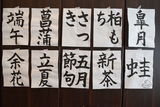 皐月
柏もち
さつき
菖蒲
端午
蛙
新茶
五月
節句
立夏
余花